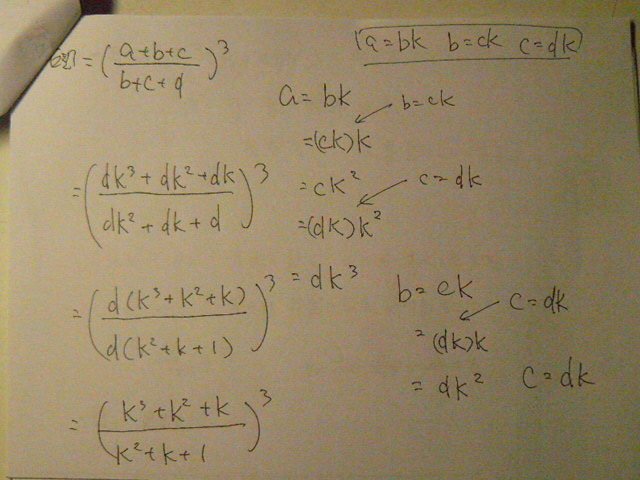 左边 = (a+b+c / b+c+d)³
a=bk b=ck c=dk
a = bk
b=ck
=(ck)k
= ck²
c=dk
=(dk)k²
= dk³
= (dk³+dk²+dk / dk²+dk+d)³
= (d(k³+k²+k) / d(k²+k+1))³
b = ck
c=dk
= (dk)k
= dk²
c=dk
= (k³+k²+k / k²+k+1)³